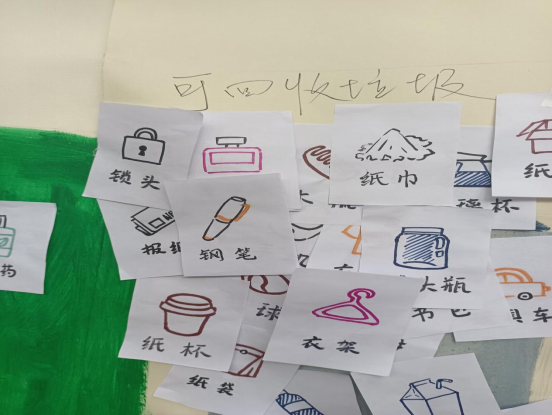 可回收垃圾
锁头
纸巾
纸
杯
药
报纸
钢笔
瓶
球
书包
车
纸杯
衣架
纸袋